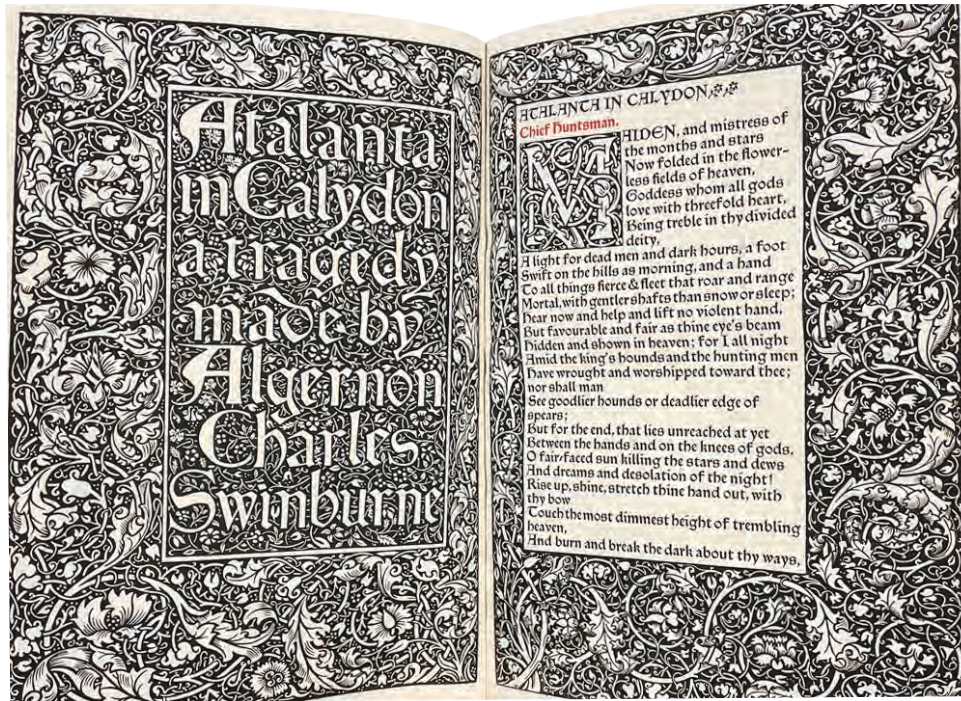 Atalanta
in Calydon
a tragedy
made by
Algernon
Charles
Swinburne
ATALANTA IN CALYDON
Chief Huntsman.
MAIDEN, and mistress of
the months and stars
Now folded in the flower-
less fields of heaven,
Goddess whom all gods
love with threefold heart,
Being treble in thy divided
deity,
A light for dead men and dark hours, a foot
Swift on the hills as morning, and a hand
To all things fierce & fleet that roar and range
Mortal, with gentler shafts than snow or sleep;
Hear now and help and lift no violent hand,
But favourable and fair as thine eye's beam
Hidden and shown in heaven; for I all night
Amid the king's hounds and the hunting men
Have wrought and worshipped toward thee;
nor shall man
See goodlier hounds or deadlier edge of
spears;
But for the end, that lies unreached at yet
Between the hands and on the knees of gods,
O fair-faced sun killing the stars and dews
And dreams and desolation of the night!
Rise up, shine, stretch thine hand out, with
thy bow
Touch the most dimmest height of trembling
heaven,
And burn and break the dark about thy ways,